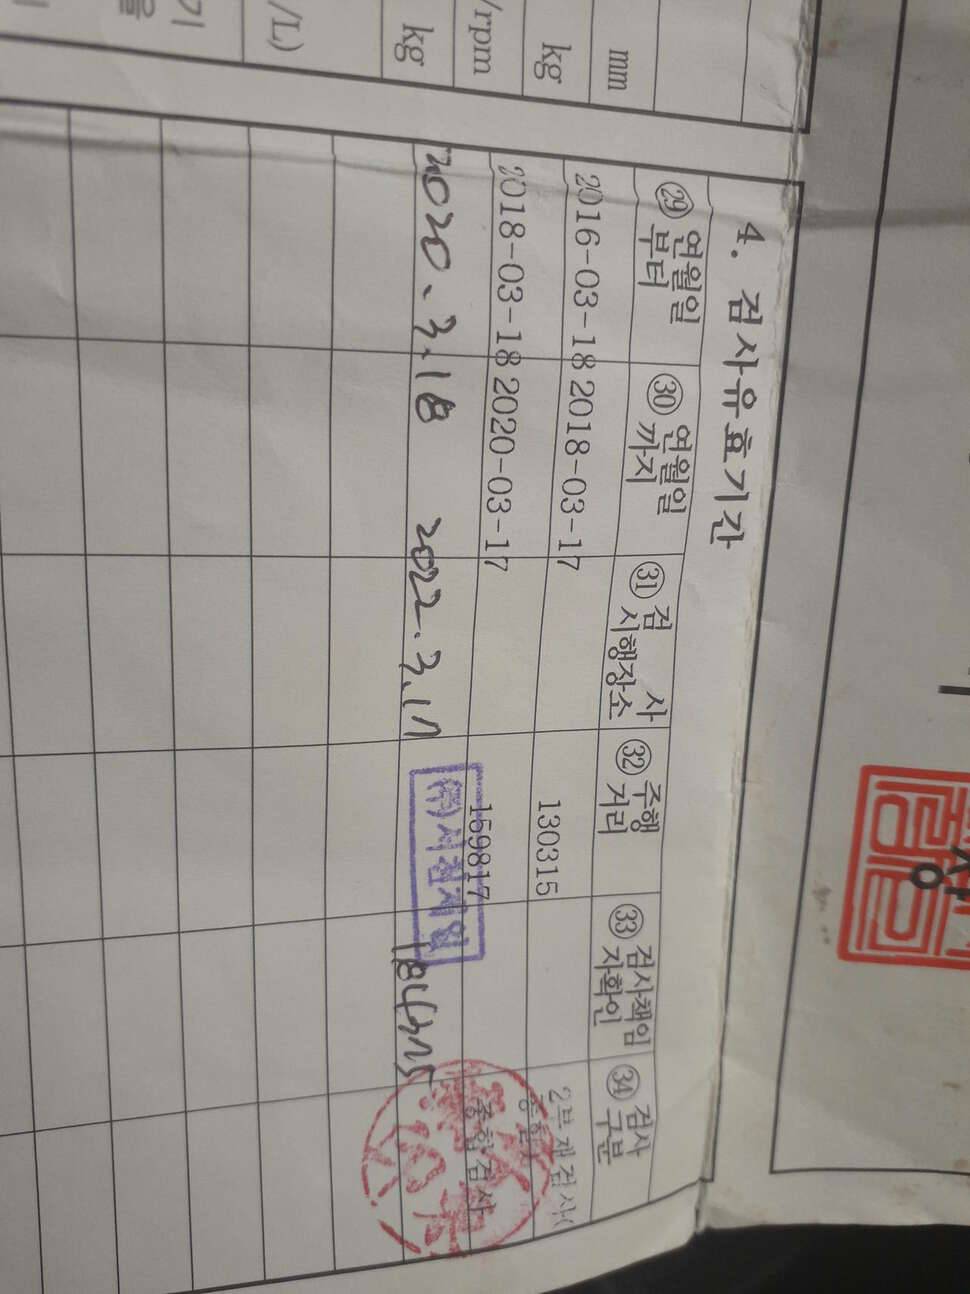 mm
kg
/rpm
kg
/L)
기
을
4. 검사유효기간
㉙ 연월일부터
㉚ 연월일까지
㉛ 검사시행장소
㉜ 주행거리
㉝ 검사책임자확인
㉞ 검사구분
2016-03-18 2018-03-17 130315 2부재검사(종합)
2018-03-18 2020-03-17 159817 종합검사
2020.3.18 2022.3.17
(주)서